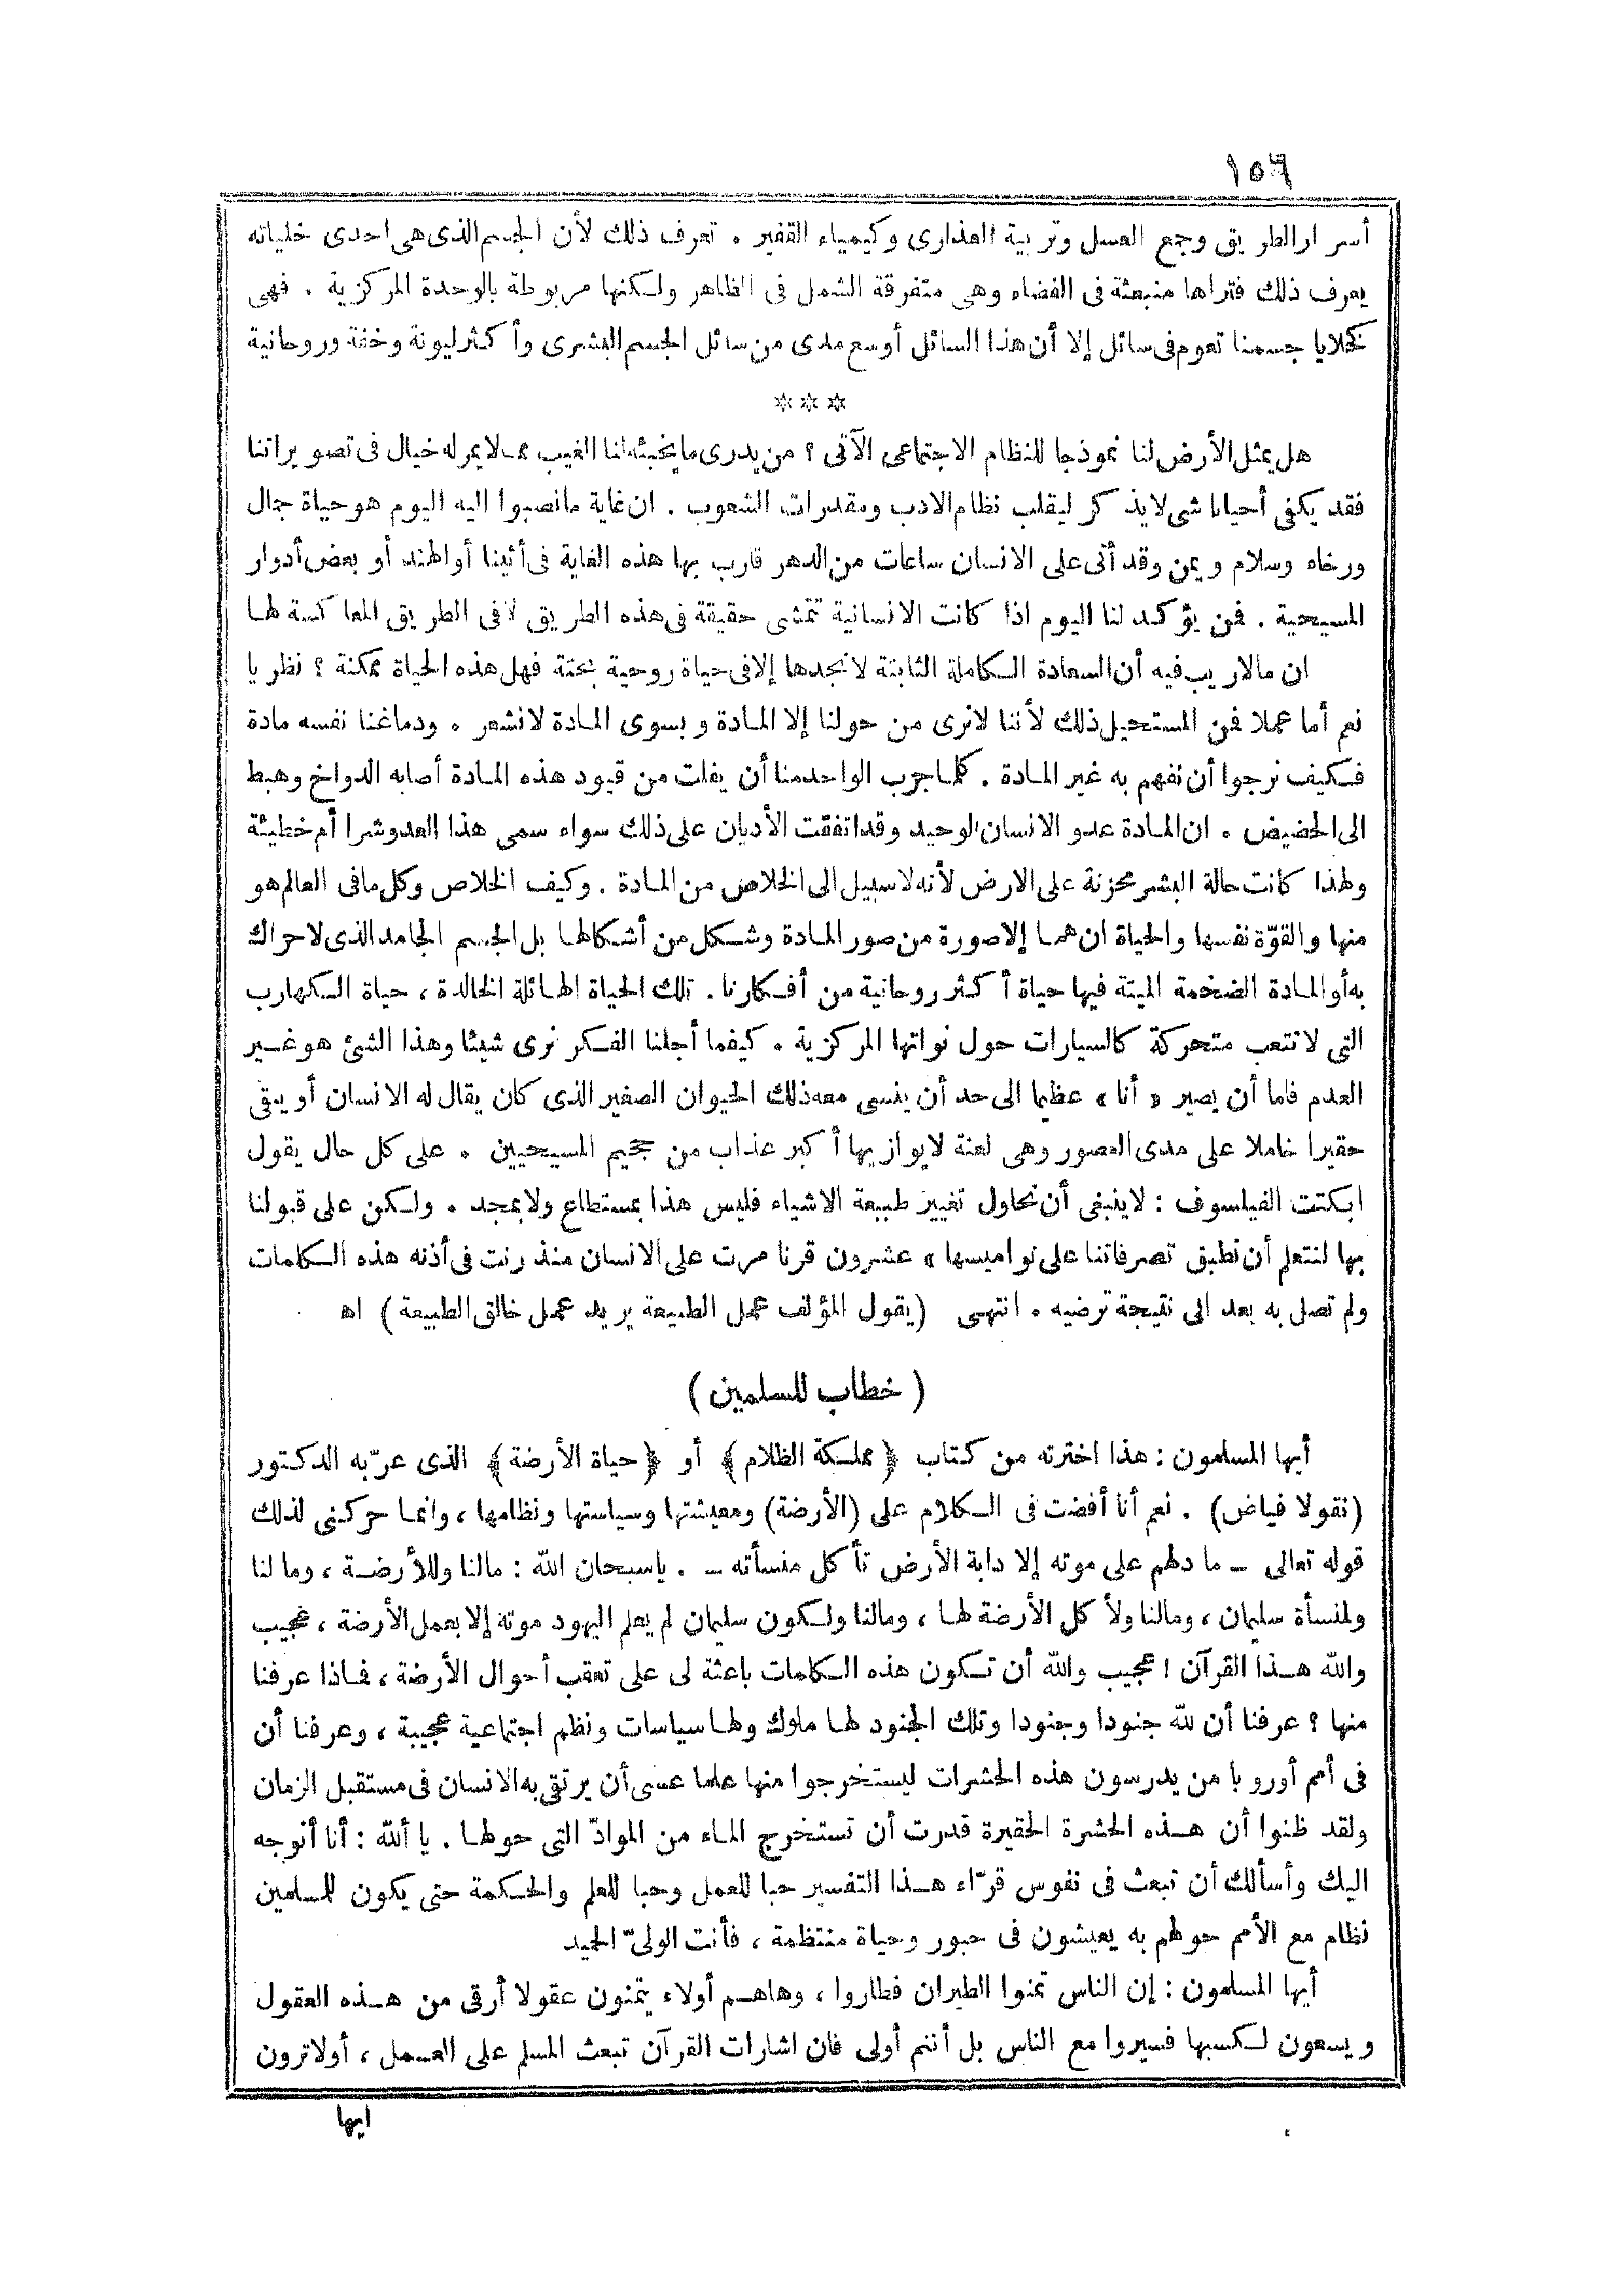 ١٥٦
أسرار الطريق وجمع العسل وتربية العذارى وكيمياء القفير . تعرف ذلك لأن الجسم الذى هى احدى خلياته
يعرف ذلك فتراها منبعثة فى الفضاء وهى متفرقة الشمل فى الظاهر ولكنها مربوطة بالوحدة المركزية . فهى
كخلايا جسمنا تعوم فى سائل إلا أن هذا السائل أوسع مدى من سائل الجسم البشرى وأكثر ليونة وخفة وروحانية
* * *
هل يمثل الأرض لنا نموذجا للنظام الاجتماعى الآتى ؟ من يدرى ما يخبئه لنا الغيب مما لا يمر له خيال فى تصويراتنا
فقد يكفى أحيانا شى لا يذكر ليقلب نظام الادب ومقدرات الشعوب . ان غاية ما نصبوا اليه اليوم هو حياة جمال
ورخاء وسلام ويمن وقد أتى على الانسان ساعات من الدهر قارب بها هذه الغاية فى أثينا أو الهند أو بعض أدوار
المسيحية . فمن يؤكد لنا اليوم اذا كانت الانسانية تتمشى حقيقة فى هذه الطريق لا فى الطريق المعاكسة لها
ان مالا ريب فيه أن السعادة الكاملة الثابتة لا نجدها إلا فى حياة روحية بحتة فهل هذه الحياة ممكنة ؟ نظريا
نعم أما عملا فمن المستحيل ذلك لأننا لا نرى من حولنا إلا المادة وبسوى المادة لا نشعر . ودماغنا نفسه مادة
فكيف نرجوا أن نفهم به غير المادة . كلما جرب الواحد منا أن يفلت من قيود هذه المادة أصابه الدواخ وهبط
الى الحضيض . ان المادة عدو الانسان الوحيد وقد اتفقت الأديان على ذلك سواء سمى هذا العدو شرا أم خطيئة
ولهذا كانت حالة البشر محزنة على الارض لأنه لا سبيل الى الخلاص من المادة . وكيف الخلاص وكل ما فى العالم هو
منها والقوّة نفسها والحياة ان هما إلا صورة من صور المادة وشكل من أشكالها بل الجسم الجامد الذى لا حراك
به أو المادة الضخمة الميتة فيها حياة أكثر روحانية من أفكارنا . تلك الحياة الهائلة الخالدة ، حياة الكهارب
التى لا تتعب متحركة كالسيارات حول نواتها المركزية . كيفما أجلنا الفكر نرى شيئا وهذا الشئ هو غير
العدم فاما أن يصير « أنا » عظيما الى حد أن ينسى معه ذلك الحيوان الصغير الذى كان يقال له الانسان أو يبقى
حقيرا خاملا على مدى العصور وهى لعنة لا يوازيها أكبر عذاب من جحيم المسيحيين . على كل حال يقول
ابكتت الفيلسوف : لا ينبغى أن نحاول تغيير طبيعة الاشياء فليس هذا بمستطاع ولا بمجد . ولكن على قبولنا
بها لنتعلم أن نطبق تصرفاتنا على نواميسها » عشرون قرنا مرت على الانسان منذ رنت فى أذنه هذه الكلمات
ولم تصل به بعد الى نتيجة ترضيه . انتهى (يقول المؤلف عمل الطبيعة يريد عمل خالق الطبيعة) اه
( خطاب للسلمين )
أيها المسلمون : هذا اخترته من كتاب ﴿مملكة الظلام﴾ أو ﴿حياة الأرضة﴾ الذى عرّبه الدكتور
(نقولا فياض) . نعم أنا أفضت فى الكلام على (الأرضة) ومعيشتها وسياستها ونظامها ، وانما حركنى لذلك
قوله تعالى - ما دلهم على موته إلا دابة الأرض تأكل منسأته - . ياسبحان الله : مالنا وللأرضة ، وما لنا
ولمنسأة سليمان ، ومالنا ولأكل الأرضة لها ، ومالنا ولكون سليمان لم يعلم اليهود موته إلا بعمل الأرضة ، عجيب
والله هذا القرآن ! عجيب والله أن تكون هذه الكلمات باعثة لى على تعقب أحوال الأرضة ، فماذا عرفنا
منها ؟ عرفنا أن لله جنودا وجنودا وتلك الجنود لها ملوك ولها سياسات ونظم اجتماعية عجيبة ، وعرفنا أن
فى أمم أوروبا من يدرسون هذه الحشرات ليستخرجوا منها علما عسى أن يرتقى به الانسان فى مستقبل الزمان
ولقد ظنوا أن هذه الحشرة الحقيرة قدرت أن تستخرج الماء من الموادّ التى حولها . يا ألله : أنا أتوجه
اليك وأسألك أن تبعث فى نفوس قرّاء هذا التفسير حبا للعمل وحبا للعلم والحكمة حتى يكون للمسلمين
نظام مع الأمم حولهم به يعيشون فى حبور وحياة منتظمة ، فأنت الولىّ الحميد
أيها المسلمون : إن الناس تمنوا الطيران فطاروا ، وهاهم أولاء يتمنون عقولا أرقى من هذه العقول
ويسعون لكسبها فسيروا مع الناس بل أنتم أولى فان اشارات القرآن تبعث المسلم على العمل ، أولا ترون
ايها